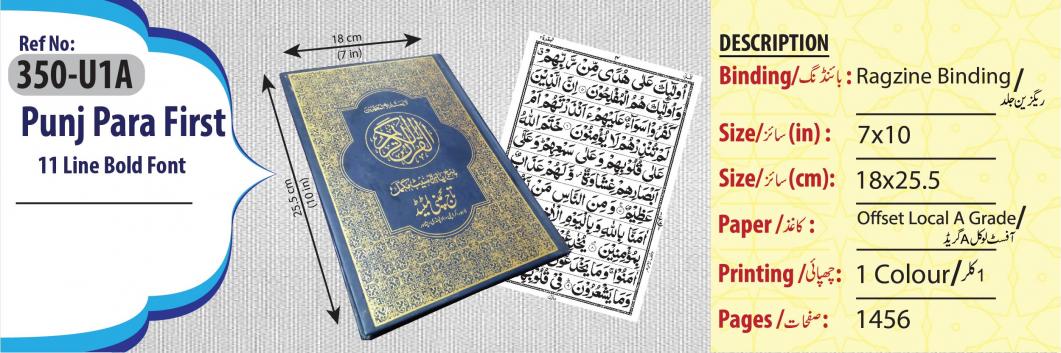 Ref No:
350-U1A
Punj Para First
11 Line Bold Font
18 cm
(7 in)
25.5 cm
(10 in)
القرآن الكريم
تاج کمپنی لمیٹڈ
أُولَٰئِكَ عَلَىٰ هُدًى مِّن رَّبِّهِمْ
وَأُولَٰئِكَ هُمُ الْمُفْلِحُونَ إِنَّ الَّذِينَ
كَفَرُوا سَوَاءٌ عَلَيْهِمْ ءَأَنذَرْتَهُمْ أَمْ
لَمْ تُنذِرْهُمْ لَا يُؤْمِنُونَ خَتَمَ اللَّهُ
عَلَىٰ قُلُوبِهِمْ وَعَلَىٰ سَمْعِهِمْ وَعَلَىٰ
أَبْصَارِهِمْ غِشَاوَةٌ وَلَهُمْ عَذَابٌ
عَظِيمٌ وَمِنَ النَّاسِ مَن
آمَنَّا بِاللَّهِ وَبِالْيَوْمِ
بِمُؤْمِنِينَ
آمَنُوا وَمَا يَخْدَعُونَ
وَمَا يَشْعُرُونَ فِي قُلُوبِهِم
DESCRIPTION
Binding/بائنڈنگ : Ragzine Binding/
ریگزین جلد
Size/سائز (in) : 7x10
Size/سائز (cm): 18x25.5
Paper/کاغذ : Offset Local A Grade/
آفسٹ لوکل A گریڈ
Printing/چھپائی: 1 Colour/1 کلر
Pages/صفحات: 1456